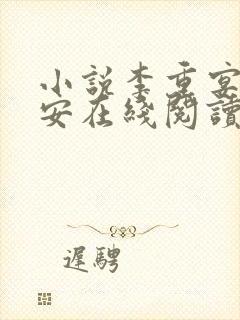 小説李重宴
安在綫閱讀
遲騁